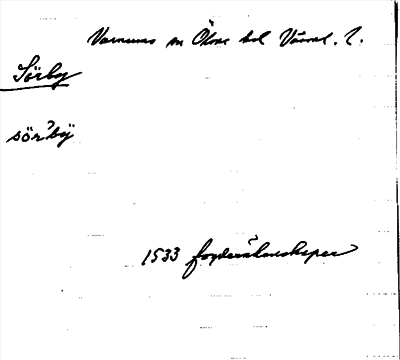 Varnums sn Ölme hd Värml. l.
Sörby
sör`bÿ
1533 fogderäkenskaper